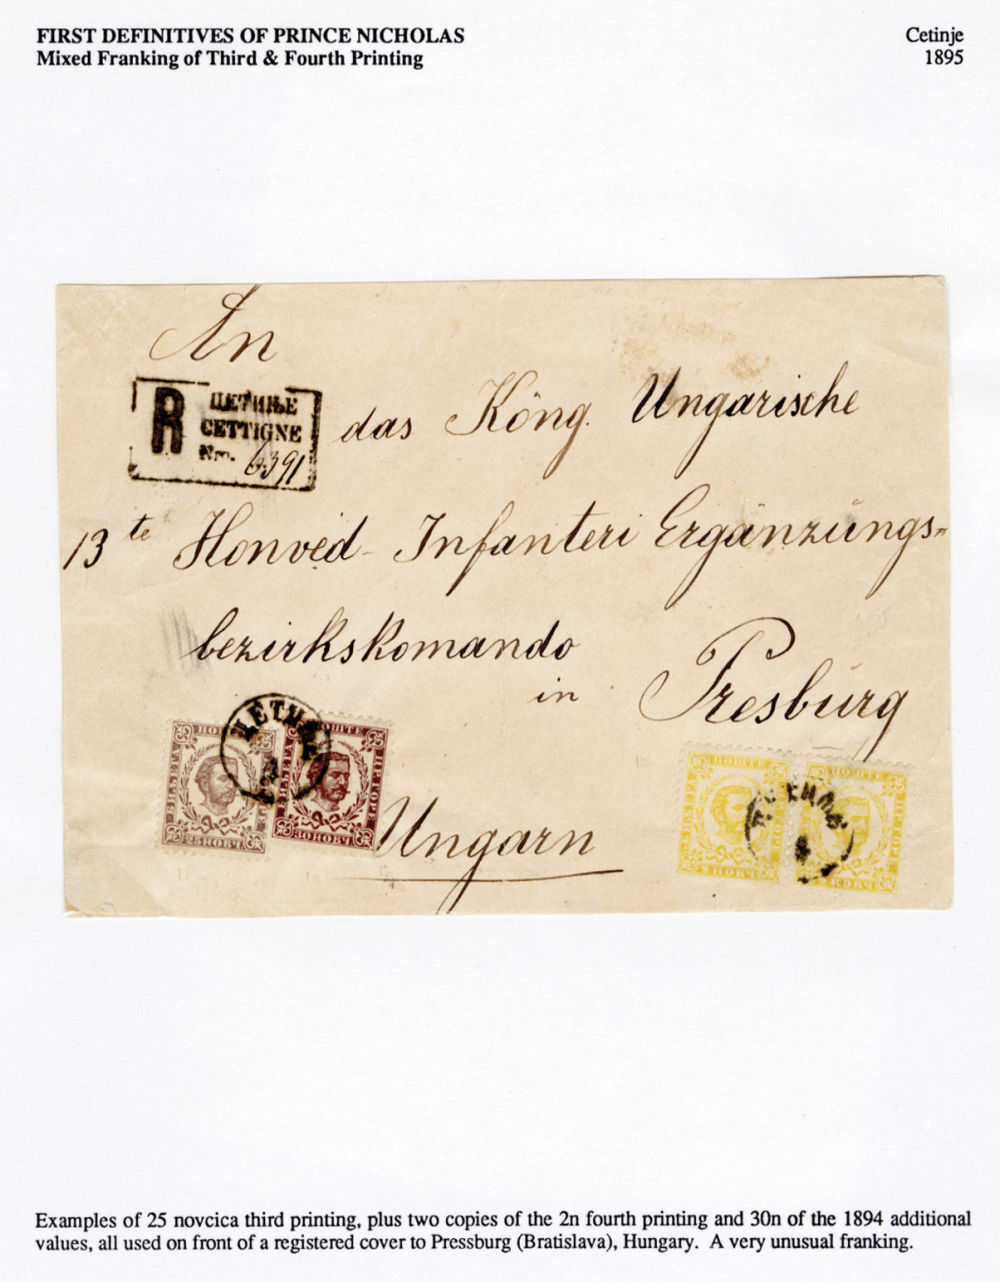 FIRST DEFINITIVES OF PRINCE NICHOLAS
Mixed Franking of Third & Fourth Printing
Cetinje
1895
An
R
ЦЕТИЊЕ
CETTIGNE
Nro. 6391
das Köng. Ungarische
13te Honvéd- Infanteri Ergänzüngs-
bezirkskomando
in Presbürg
Ungarn
25 НОВЧ
ПОШТЕ
ЦР. ГОРЕ
30 НОВЧ
ПОШТЕ
2 НОВЧ
ПОШТЕ
Examples of 25 novcica third printing, plus two copies of the 2n fourth printing and 30n of the 1894 additional
values, all used on front of a registered cover to Pressburg (Bratislava), Hungary. A very unusual franking.